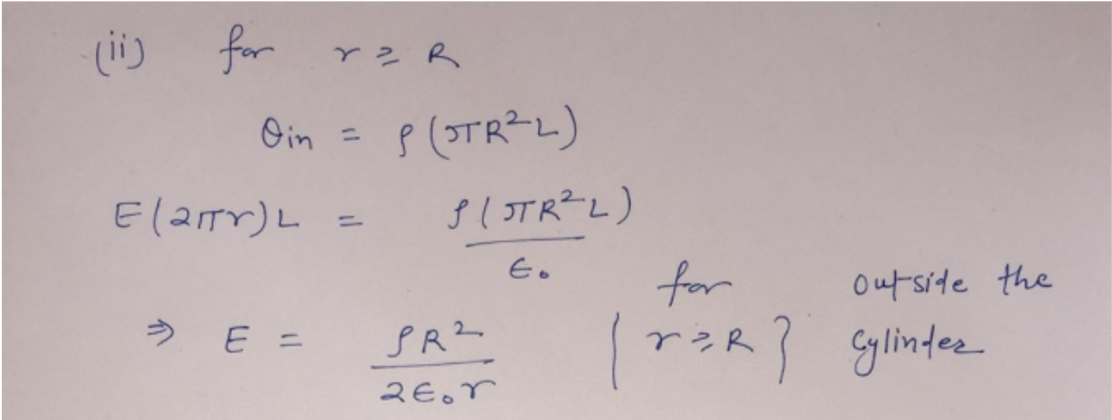 (ii) for r ≥ R
Qin = ρ(πR²L)
E(2πr)L = ρ(πR²L) / ε₀
⇒ E = ρR² / 2ε₀r { for r ≥ R } outside the cylinder